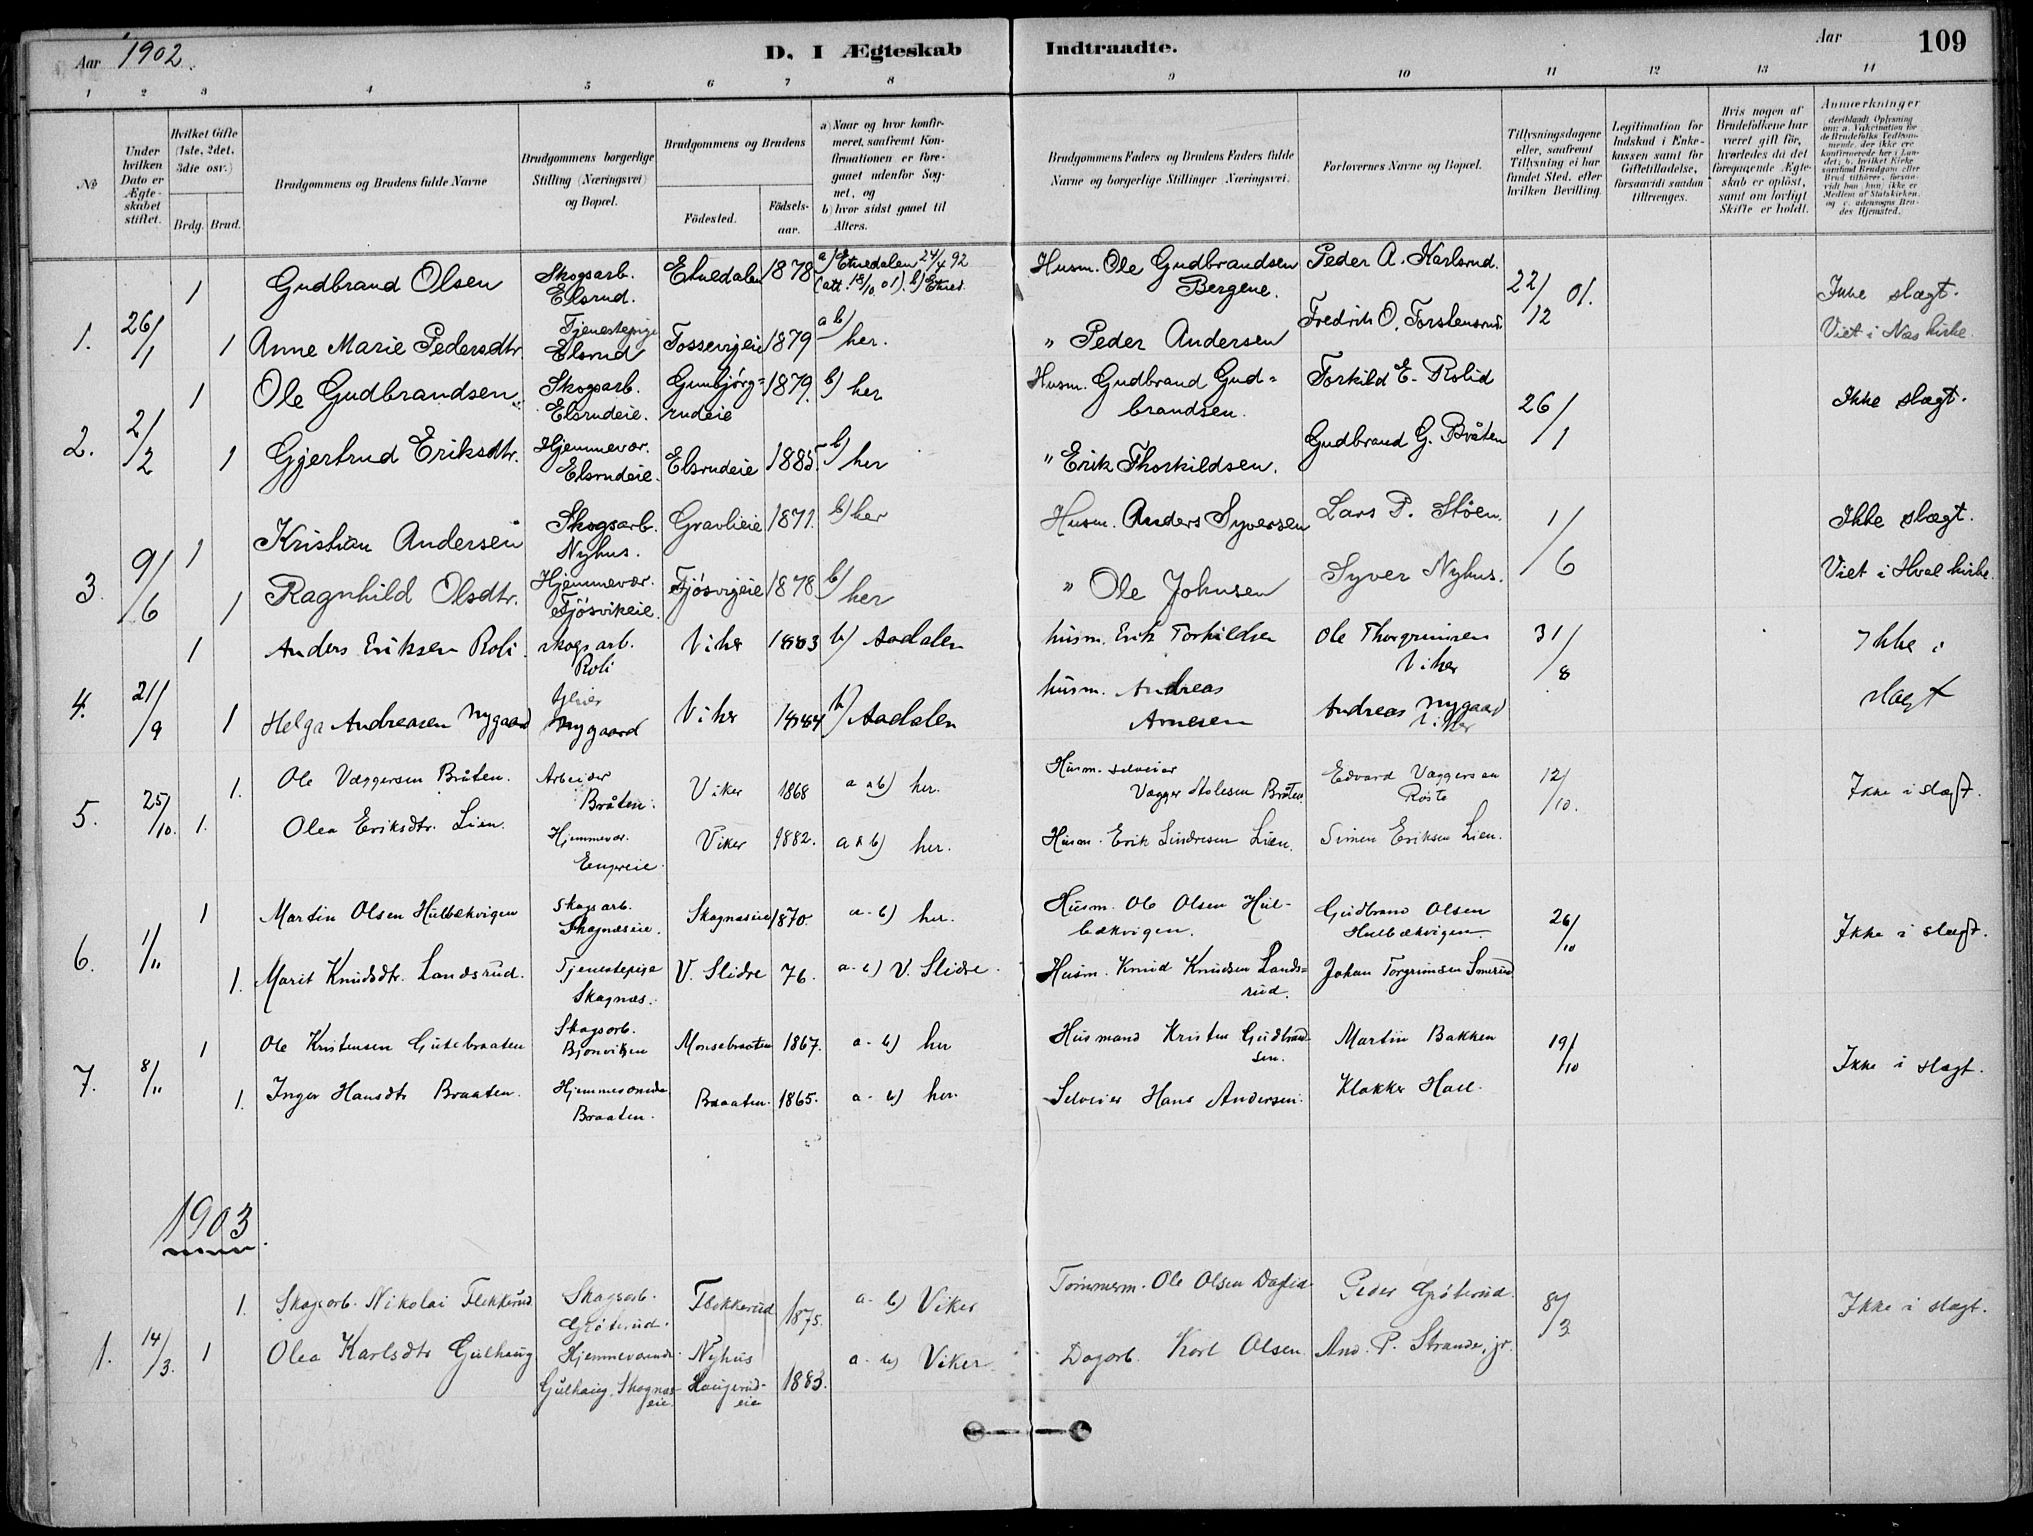 Aar 1902. D. I Ægteskab Indtraadte. Aar 109
1 2 3 4 5 6 7 8 9 10 11 12 13 14
№
Under hvilken Dato er Ægteskabet stiftet.
Hvilket Gifte (1ste, 2det, 3die osv.)
Brdg. Brud.
Brudgommens og Brudens fulde Navne
Brudgommens borgerlige Stilling (Næringsvei) og Bopæl.
Brudgommens og Brudens
Fødested.
Fødsels-aar.
a) Naar og hvor konfirmeret, saafremt Konfirmationen er foregaaet udenfor Sognet, og
b) hvor sidst gaaet til Alters.
Brudgommens Faders og Brudens Faders fulde Navne og borgerlige Stillinger Næringsvei.
Forlovernes Navne og Bopæl.
Tillysningsdagene eller, saafremt Tillysning ei har fundet Sted, efter hvilken Bevilling.
Legitimation for Indskud i Enkekassen samt for Giftetilladelse, forsaavidt saadan tiltrænges.
Hvis nogen af Brudefolkene har været gift før, hvorledes da det foregaaende Ægteskab er opløst, samt om lovligt Skifte er holdt.
Anmærkninger
1. 26/1 1 Gudbrand Olsen Skogsarb. Elsrud. Etnedalen 1878 a) Etnedalen 24/4 92 (att. 18/10 01). b) Etned. Husm. Ole Gudbrandsen Bergene. Peder A. Karlsrud. 22/12 01. Ikke slægt.
1 Anne Marie Pedersdtr. Tjenestepige Elsrud Fossevigeie 1879 a b) her. " Peder Andersen Fredrik O. Torstensrud. Viet i Næs kirke.
2. 2/2 1 Ole Gudbrandsen. Skogsarb. Elsrudeie. Gunbjørg=rudeie 1879. b) her Husm. Gudbrand Gud=brandsen. Torkild E. Rolid 26/1 Ikke slægt.
1 Gjertrud Eriksdtr. Hjemmevær. Elsrudeie. Elsrudeie 1885. b) her " Erik Thorkildsen. Gudbrand G. Bråten
3. 9/6 1 Kristian Andersen Skogsarb. Nyhus. Gravlieie 1871. b) her Husm. Anders Syversen Lars P. Støen. 1/6 Ikke slægt.
1 Ragnhild Olsdtr. Hjemmevær. Fjøsvikeie. Fjøsvigeie 1878 b) her " Ole Johnsen Syver Nyhus. Viet i Hval kirke.
4. 21/9 1 Anders Eriksen Roli. skogsarb. Roli Viker 1883 b) Aadalen husm. Erik Torkildsen Ole Thorgrimsen Viker 31/8 Ikke i slægt
1 Helga Andreasen Nygaard Nygaard Viker 1884 b) Aadalen husm. Andreas Arnesen Andreas Nygaard Viker
5. 25/10. 1. Ole Væggersen Bråten. Arbeider Bråten. Viker 1868 a & b) her. Husm. selveier Vægger Bråten Edvard Væggersen Røste 12/10. Ikke i slægt.
1. Olea Eriksdtr. Lien. Hjemmevær. Viker 1882. a & b) her. Husm. Erik Sindresen Lien. Simen Eriksen Lien.
6. 1/11 1 Martin Olsen Hulbækvigen Skogsarb. Skagnæseie. Skagnæseie 1870. a. b) her. Husm. Ole Olsen Hulbækvigen. Gudbrand Olsen Hulbækvigen. 26/10 Ikke i slægt.
1. Marit Knudsdtr. Landsrud. Tjenestepige Skagnæs. V. Slidre 76. a. b) V. Slidre. Husm. Knud Knudsen Lands=rud. Johan Torgrimsen Smerud
7. 8/11 1 Ole Kristensen Gutebraaten Skogsarb. Bjonviken Monsebraaten 1867. a. b) her Husmand Kristen Gudbrandsen. Martin Bakken 19/10 Ikke i slægt.
1. Inger Hansdtr Braaten. Hjemmeværende Braaten. Braaten. 1865. a. b) her. Selveier Hans Andersen. Klokker Hall.
1903.
1. 14/3. 1. Skogsarb. Nikolai Flikkerud. Skogsarb. Grøterud. Flikkerud 1875. a. b) Viker Tømmerm. Ole Olsen Peder Grøterud. 8/3 Ikke i slægt.
1 Olea Karlsdtr Gulhaug Hjemmeværende Gulhaug, Skagnæseie. Nyhus Haugerudeie 1883. a. b) Viker. Dagarb. Karl Olsen. And. P. Strande, jr.